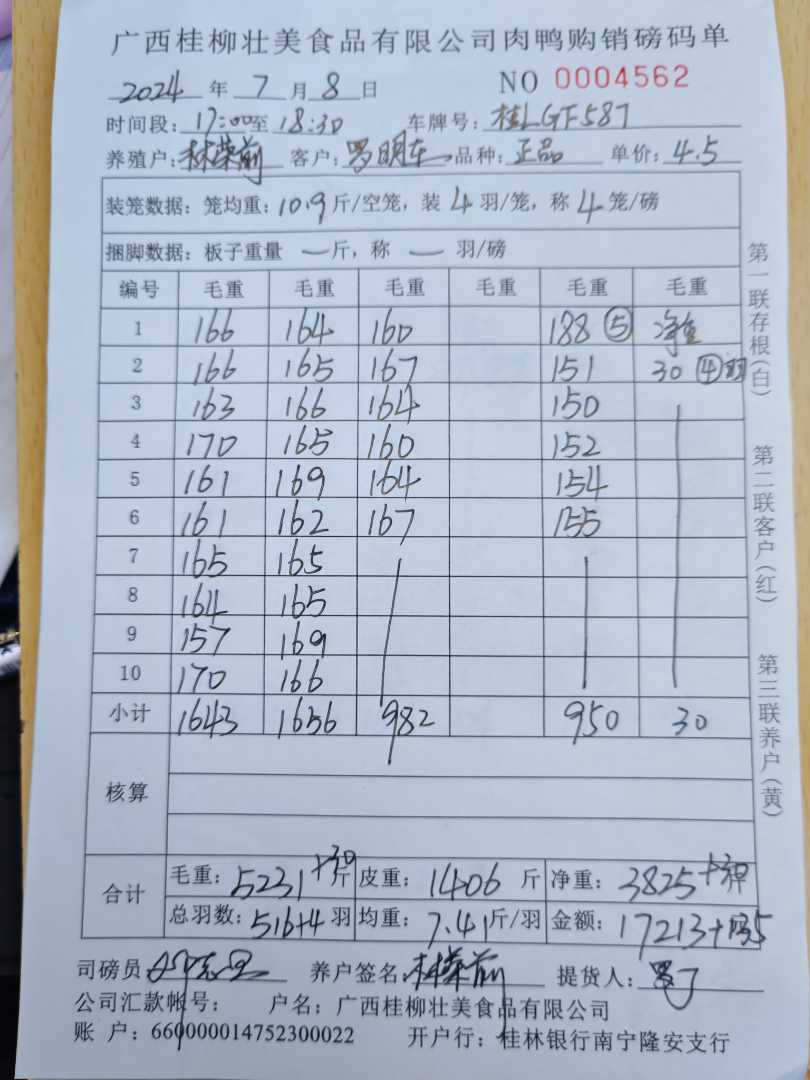 广西桂柳壮美食品有限公司肉鸭购销磅码单
2024 年 7 月 8 日 NO 0004562
时间段: 17:00 至 18:30 车牌号: 桂LGF587
养殖户: 林荣前 客户: 罗明东 品种: 正品 单价: 4.5
装笼数据: 笼均重: 10.9 斤/空笼, 装 4 羽/笼, 称 4 笼/磅
捆脚数据: 板子重量 — 斤, 称 — 羽/磅
编号 毛重 毛重 毛重 毛重 毛重 毛重
1 166 164 160 188 ⑤ 净重
2 166 165 167 151 30 ④羽
3 163 166 164 150
4 170 165 160 152
5 161 169 164 154
6 161 162 167 155
7 165 165
8 164 165
9 157 169
10 170 166
小计 1643 1656 982 950 30
核算
合计 毛重: 5231+30 斤 皮重: 1406 斤 净重: 3825+30 斤
总羽数: 516+4 羽 均重: 7.41 斤/羽 金额: 17213+135
司磅员 养户签名: 林荣前 提货人: 罗
公司汇款帐号: 户名: 广西桂柳壮美食品有限公司
账 户: 660000014752300022 开户行: 桂林银行南宁隆安支行
第一联存根(白) 第二联客户(红) 第三联养户(黄)